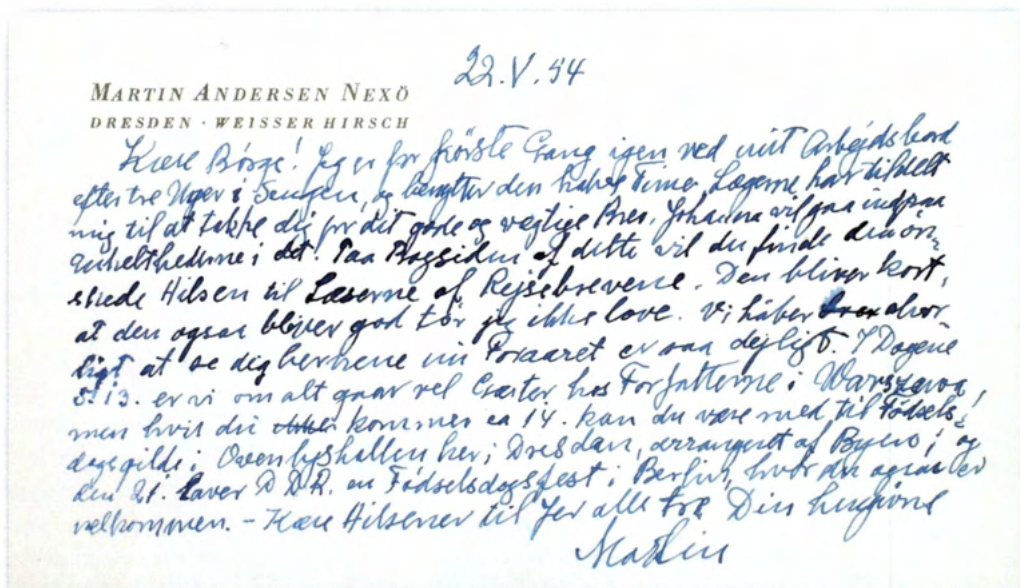 22.V.54
MARTIN ANDERSEN NEXÖ
DRESDEN · WEISSER HIRSCH
Kære Börge! Jeg er for förste Gang igen ved mit Arbejdsbord
efter tre Uger i Sengen, og benytter den halve Time, Lægerne har tildelt
mig til at takke dig for dit gode og vegtige Brev. Johanna vil gaa indpaa
enkelthederne i det. Paa Bagsiden af dette vil du finde den ön-
skede Hilsen til Læserne af Rejsebrevene. Den bliver kort,
at den ogsaa bliver god tör jeg ikke love. Vi håber alvor-
ligt at se dig herhene nu Foraaret er saa dejligt. I Dagene
5.-13. er vi om alt gaar vel Gæster hos Forfatterne i Warszawa,
men hvis du kommer ca 14. kan du være med til Födsels-
dagsgilde i her i Dresden, arrangeret af Byen; og
den 21. laver D.D.R. en Födselsdagsfest i Berlin, hvor du ogsaa er
velkommen. – Kære Hilsener til Jer alle tre Din hengivne
Martin